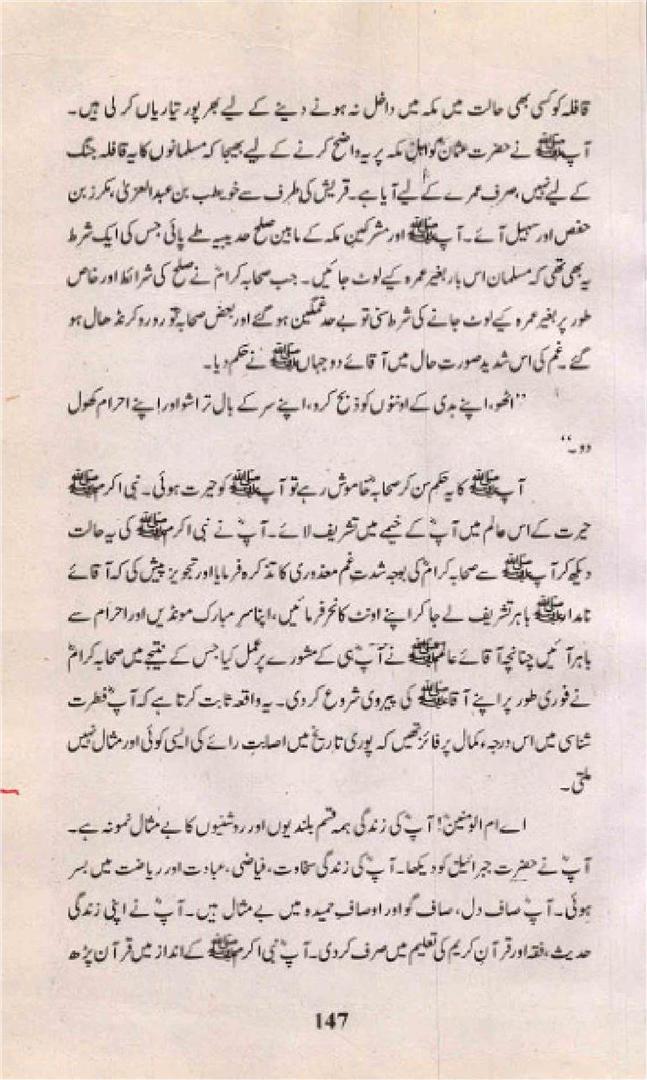 قافلہ کو کسی بھی حالت میں مکہ میں داخل نہ ہونے دینے کے لیے بھرپور تیاریاں کر لی ہیں۔
آپ ﷺ نے حضرت عثمانؓ کو اہل مکہ پر یہ واضح کرنے کے لیے بھیجا کہ مسلمانوں کا یہ قافلہ جنگ
کے لیے نہیں، صرف عمرے کے لیے آیا ہے۔ قریش کی طرف سے خویطب بن عبدالعزیٰ، مکرز بن
حفص اور سہیل آئے۔ آپ ﷺ اور مشرکین مکہ کے مابین صلح حدیبیہ طے پائی جس کی ایک شرط
یہ بھی تھی کہ مسلمان اس بار بغیر عمرہ کیے لوٹ جائیں۔ جب صحابہ کرامؓ نے صلح کی شرائط اور خاص
طور پر بغیر عمرہ کیے لوٹ جانے کی شرط سنی تو بے حد غمگین ہو گئے اور بعض صحابہؓ تو رو رو کر نڈھال ہو
گئے۔ غم کی اس شدید صورت حال میں آقائے دو جہاں ﷺ نے حکم دیا۔
”اٹھو، اپنے ہدی کے اونٹوں کو ذبح کرو، اپنے سر کے بال تراشو اور اپنے احرام کھول
دو۔“
آپ ﷺ کا یہ حکم سن کر صحابہؓ خاموش رہے تو آپ ﷺ کو حیرت ہوئی۔ نبی اکرم ﷺ
حیرت کے اس عالم میں آپؓ کے خیمے میں تشریف لائے۔ آپؓ نے نبی اکرم ﷺ کی یہ حالت
دیکھ کر آپ ﷺ سے صحابہ کرامؓ کی بوجہ شدتِ غم معذوری کا تذکرہ فرمایا اور تجویز پیش کی کہ آقائے
نامدار ﷺ باہر تشریف لے جا کر اپنے اونٹ کا نحر فرمائیں، اپنا سر مبارک مونڈیں اور احرام سے
باہر آئیں چنانچہ آقائے عالم ﷺ نے آپؓ ہی کے مشورے پر عمل کیا جس کے نتیجے میں صحابہ کرامؓ
نے فوری طور پر اپنے آقا ﷺ کی پیروی شروع کر دی۔ یہ واقعہ ثابت کرتا ہے کہ آپؓ فطرت
شناسی میں اس درجہ ءکمال پر فائز تھیں کہ پوری تاریخ میں اصابتِ رائے کی ایسی کوئی اور مثال نہیں
ملتی۔
اے ام المومنینؓ! آپؓ کی زندگی ہمہ قسم بلندیوں اور روشنیوں کا بے مثال نمونہ ہے۔
آپؓ نے حضرت جبرائیلؑ کو دیکھا۔ آپؓ کی زندگی سخاوت، فیاضی، عبادت اور ریاضت میں بسر
ہوئی۔ آپؓ صاف دل، صاف گو اور اوصاف حمیدہ میں بے مثال ہیں۔ آپؓ نے اپنی زندگی
حدیث، فقہ اور قرآن کریم کی تعلیم میں صرف کر دی۔ آپؓ نبی اکرم ﷺ کے انداز میں قرآن پڑھ
147